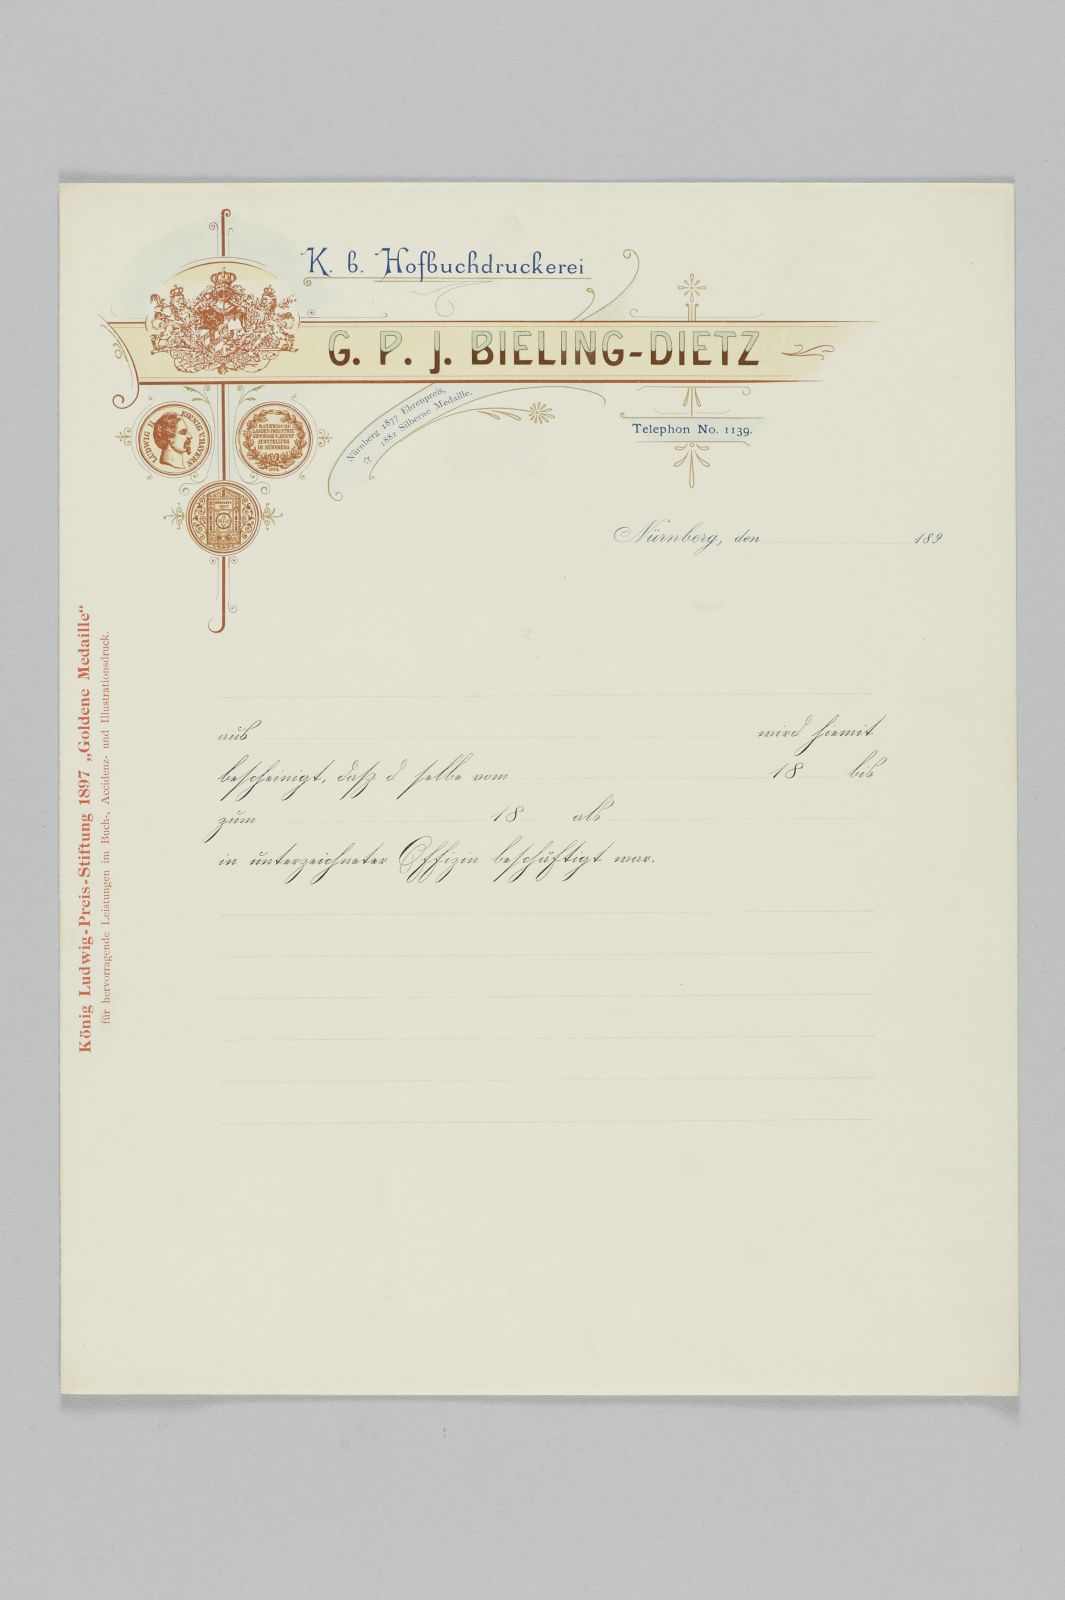 K. b. Hofbuchdruckerei
G. P. J. BIELING-DIETZ
Nürnberg 1877 Ehrenpreis,
1882 Silberne Medaille.
Telephon No. 1139.
LUDWIG II KOENIG V. BAYERN
BAYERISCHE
LANDES-INDUSTRIE
GEWERBE U. KUNST
AUSSTELLUNG
IN NÜRNBERG
1882
Nürnberg, den 189
König Ludwig-Preis-Stiftung 1897 „Goldene Medaille“
für hervorragende Leistungen im Buch-, Accidenz- und Illustrationsdruck.
aus wird hiemit
bescheinigt, dasz d selbe vom 18 bis
zum 18 als
in unterzeichneter Offizin beschäftigt war.